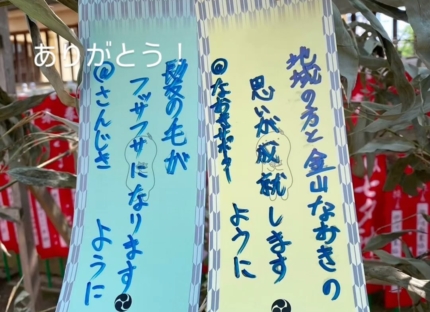 ありがとう!
地域の方と金山なおきの
思いが成就します
ように
髪の毛が
フッサフサになります
ように
@さんじき